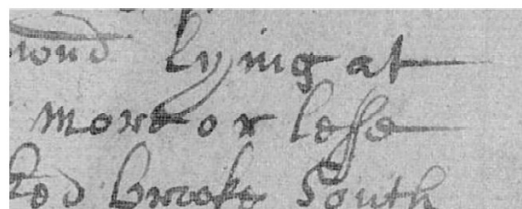 lying at
more or lesse
Brooke South